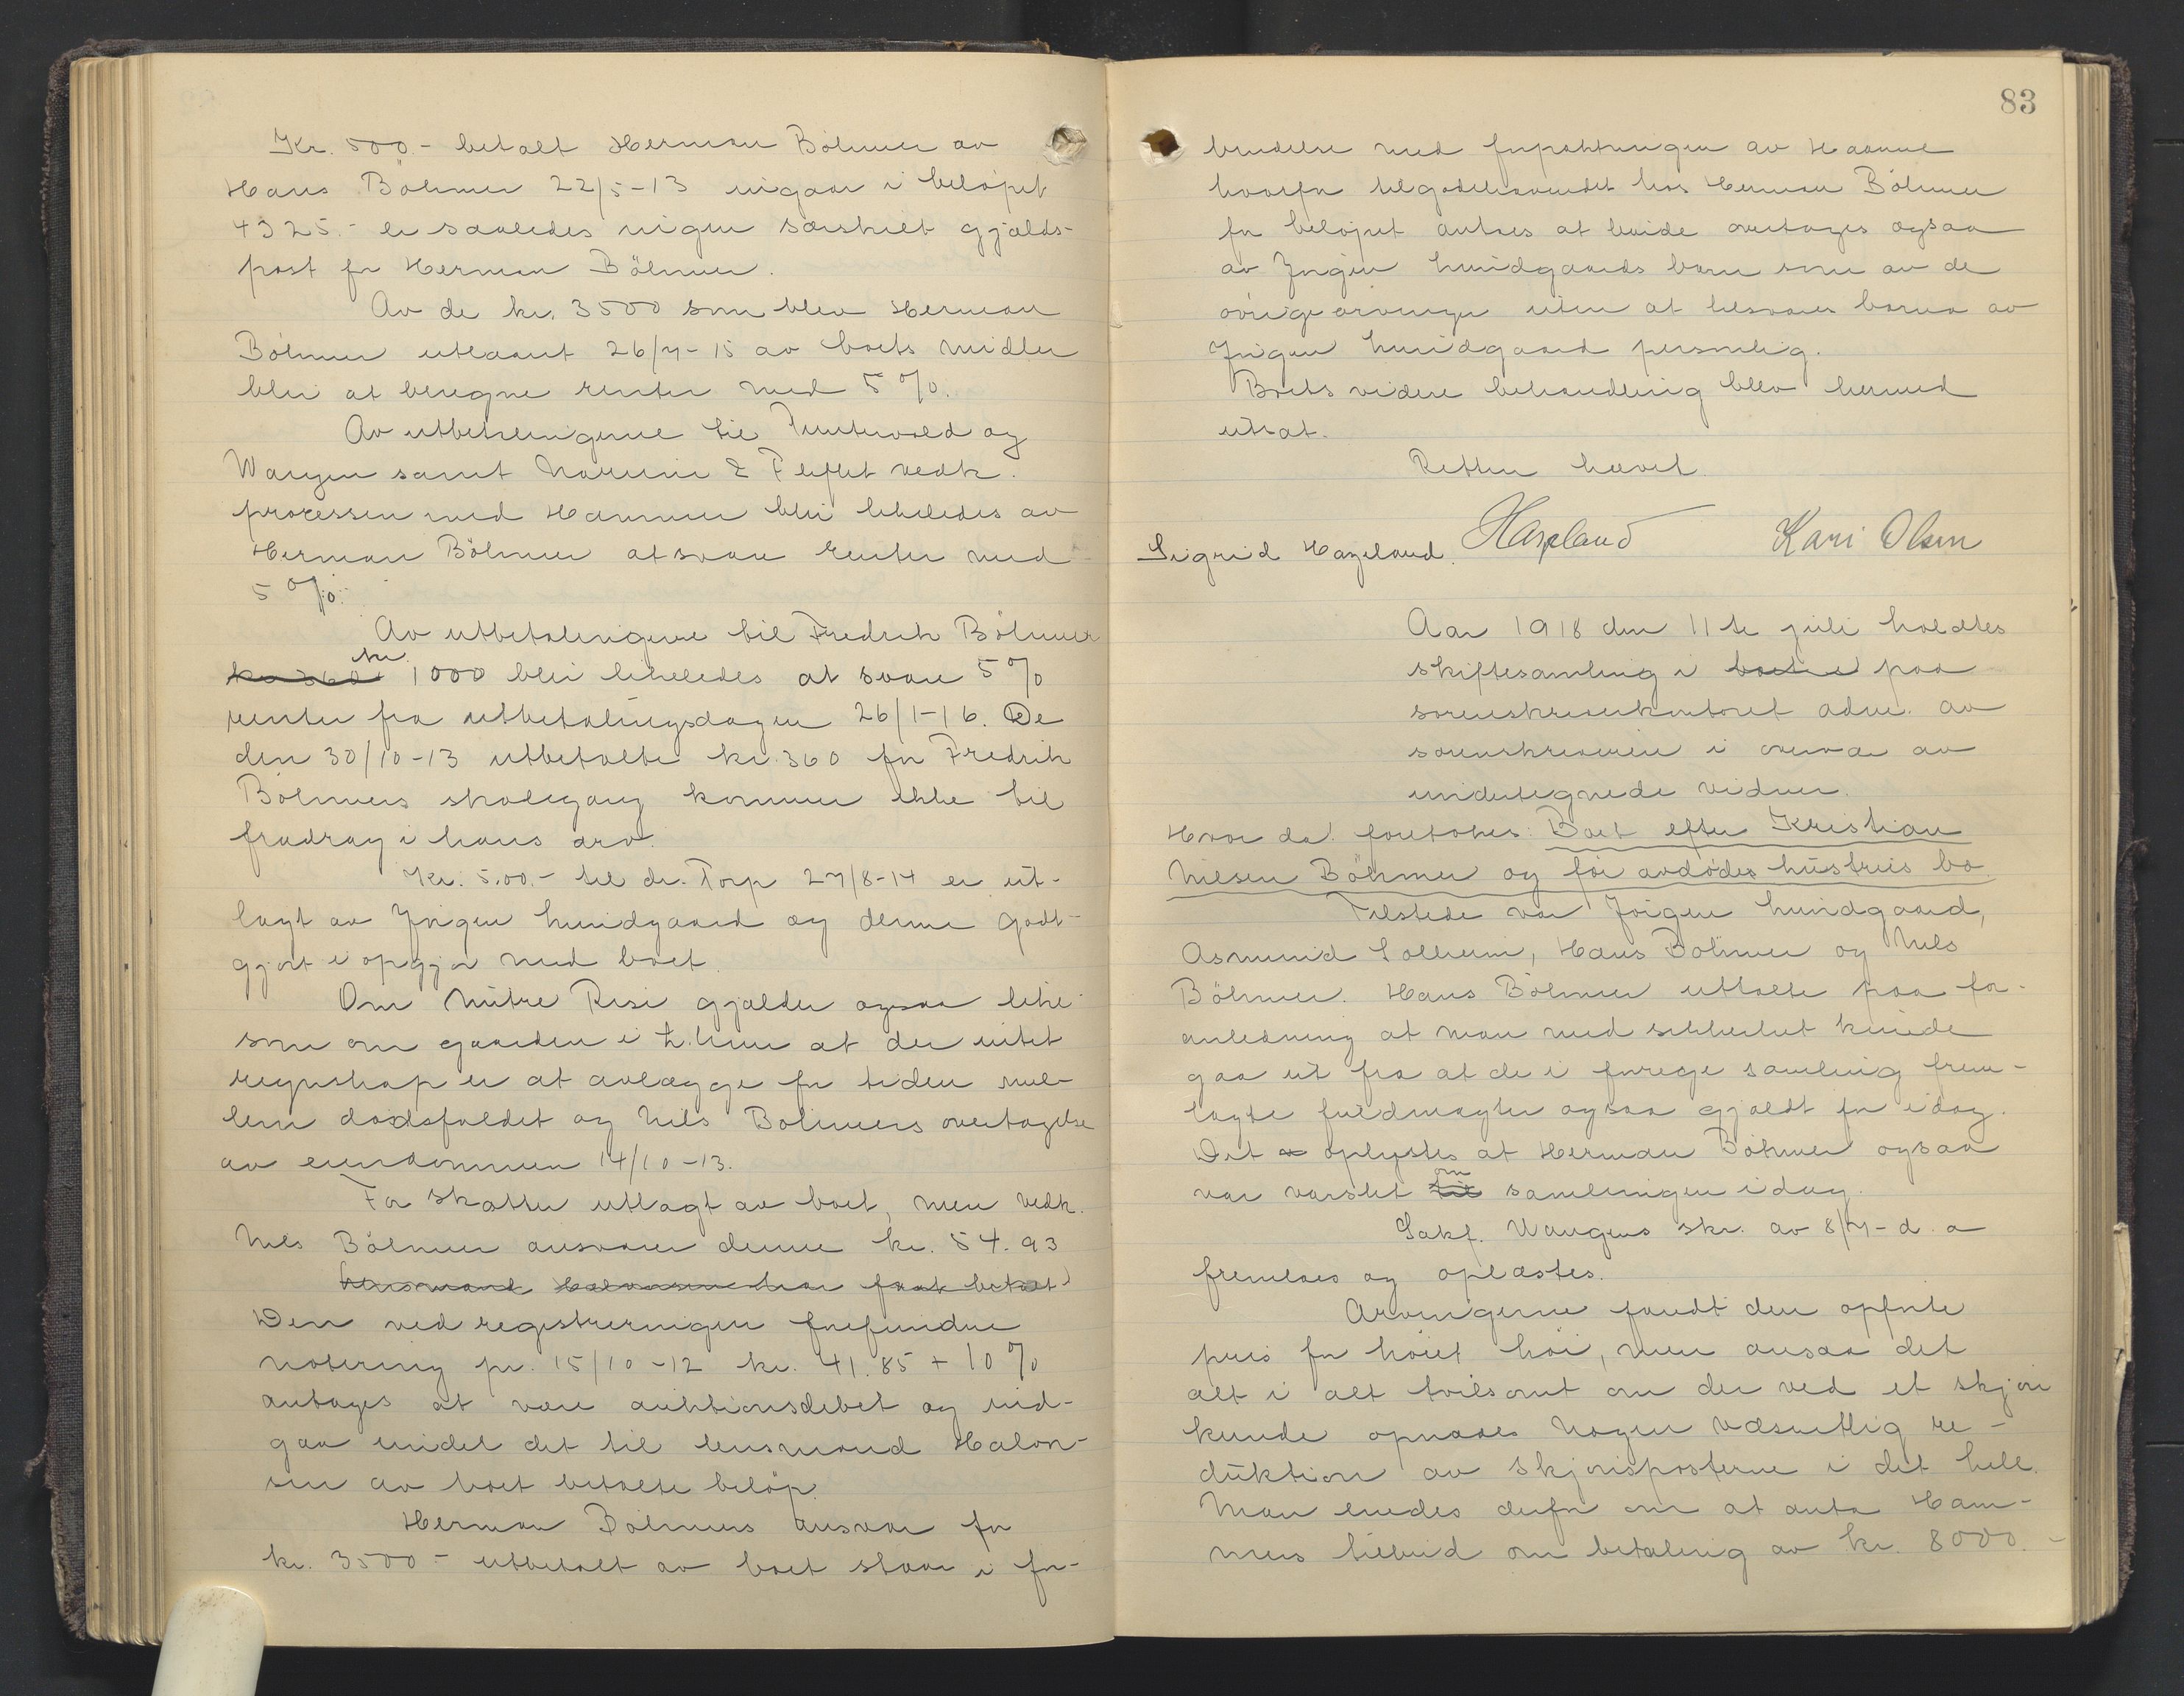 Kr. 500.- betalt Herman Böhmer av
Hans Böhmer 22/5-13 ingaar i beløpet
4325.- er saaledes ingen særskilt gjælds-
post for Herman Böhmer.
Av de kr. 3500 som blev Herman
Böhmer utlaant 26/7-15 av boets midler
blir at beregne renter med 5 %.
Av utbetalingerne til og
Wangen samt vedk.
processen med Hammer blir likeledes av
Herman Böhmer at svare renter med
5 %.
Av utbetalingerne til Fredrik Böhmer
kr. 360 kr 1000 blir likeledes at svare 5 %
renter fra utbetalingsdagen 26/1-16. De
den 30/10-13 utbetalte kr. 360 for Fredrik
Böhmers skolegang kommer ikke til
fradrag i hans arv.
Kr. 5,00.- til dr. Torp 27/8-14 er ut-
lagt av Jørgen Lundgaard og denne godt-
gjort i opgjør med boet.
Om Risi gjælder ogsaa like-
som om gaarden i at der intet
regnskap er at avlægge for tiden mel-
lem dødsfaldet og Nils Böhmers overtagelse
av eiendommen 14/10-13.
For skatter utlagt av boet, men vedk.
Nils Böhmer ansvarer denne kr. 54.93
Lensmand Halvorsen har faat betalt
Den ved registreringen forefundne
notering pr. 15/10-12 kr. 41.85 + 10 %
antages at være auktionsdebet og ind-
gaa under det til lensmand Halvor-
sen av boet betalte beløp.
Herman Böhmers ansvar for
kr. 3500.- utbetalt av boet staar i for-
83
bindelse med forpaktningen av
hvorfor tilgodehavendet hos Herman Böhmer
for beløpet antaes at burde overtages ogsaa
av Jørgen Lundgaards barn som av de
øvrige arvinger uten at tilsvares barna av
Jørgen Lundgaard personlig.
Boets videre behandling blev hermed
utsat.
Retten hævet.
Hazeland Kari Olsen
Sigrid Hazeland.
Aar 1918 den 11te juli holdtes
skiftesamling i boet e paa
sorenskriverkontoret adm. av
sorenskriveren i overvær av
undertegnede vidner.
Hvor da! foretokes: Boet efter Kristian
Nilsen Böhmer og før avdødes hustrus bo.
Tilstede var Jørgen Lundgaard,
Asmund Solheim, Hans Böhmer og Nils
Böhmer. Hans Böhmer uttalte paa for-
anledning at man med sikkerhet kunde
gaa ut fra at de i forrige samling frem-
lagte fuldmagter ogsaa gjaldt for idag.
Det oplystes at Herman Böhmer ogsaa
var varslet til om samlingen idag.
Sakf. Wangens skr. av 8/7-d.a
fremlaes og oplæstes.
Arvingerne fandt den opførte
pris for høiet høi, men ansaa det
alt i alt tvilsomt om der ved et skjøn
kunde opnaaes nogen væsentlig re-
duktion av skjønsposterne i det hele.
Man enedes derfor om at anta Ham-
mers tilbud om betaling av kr. 8000.-